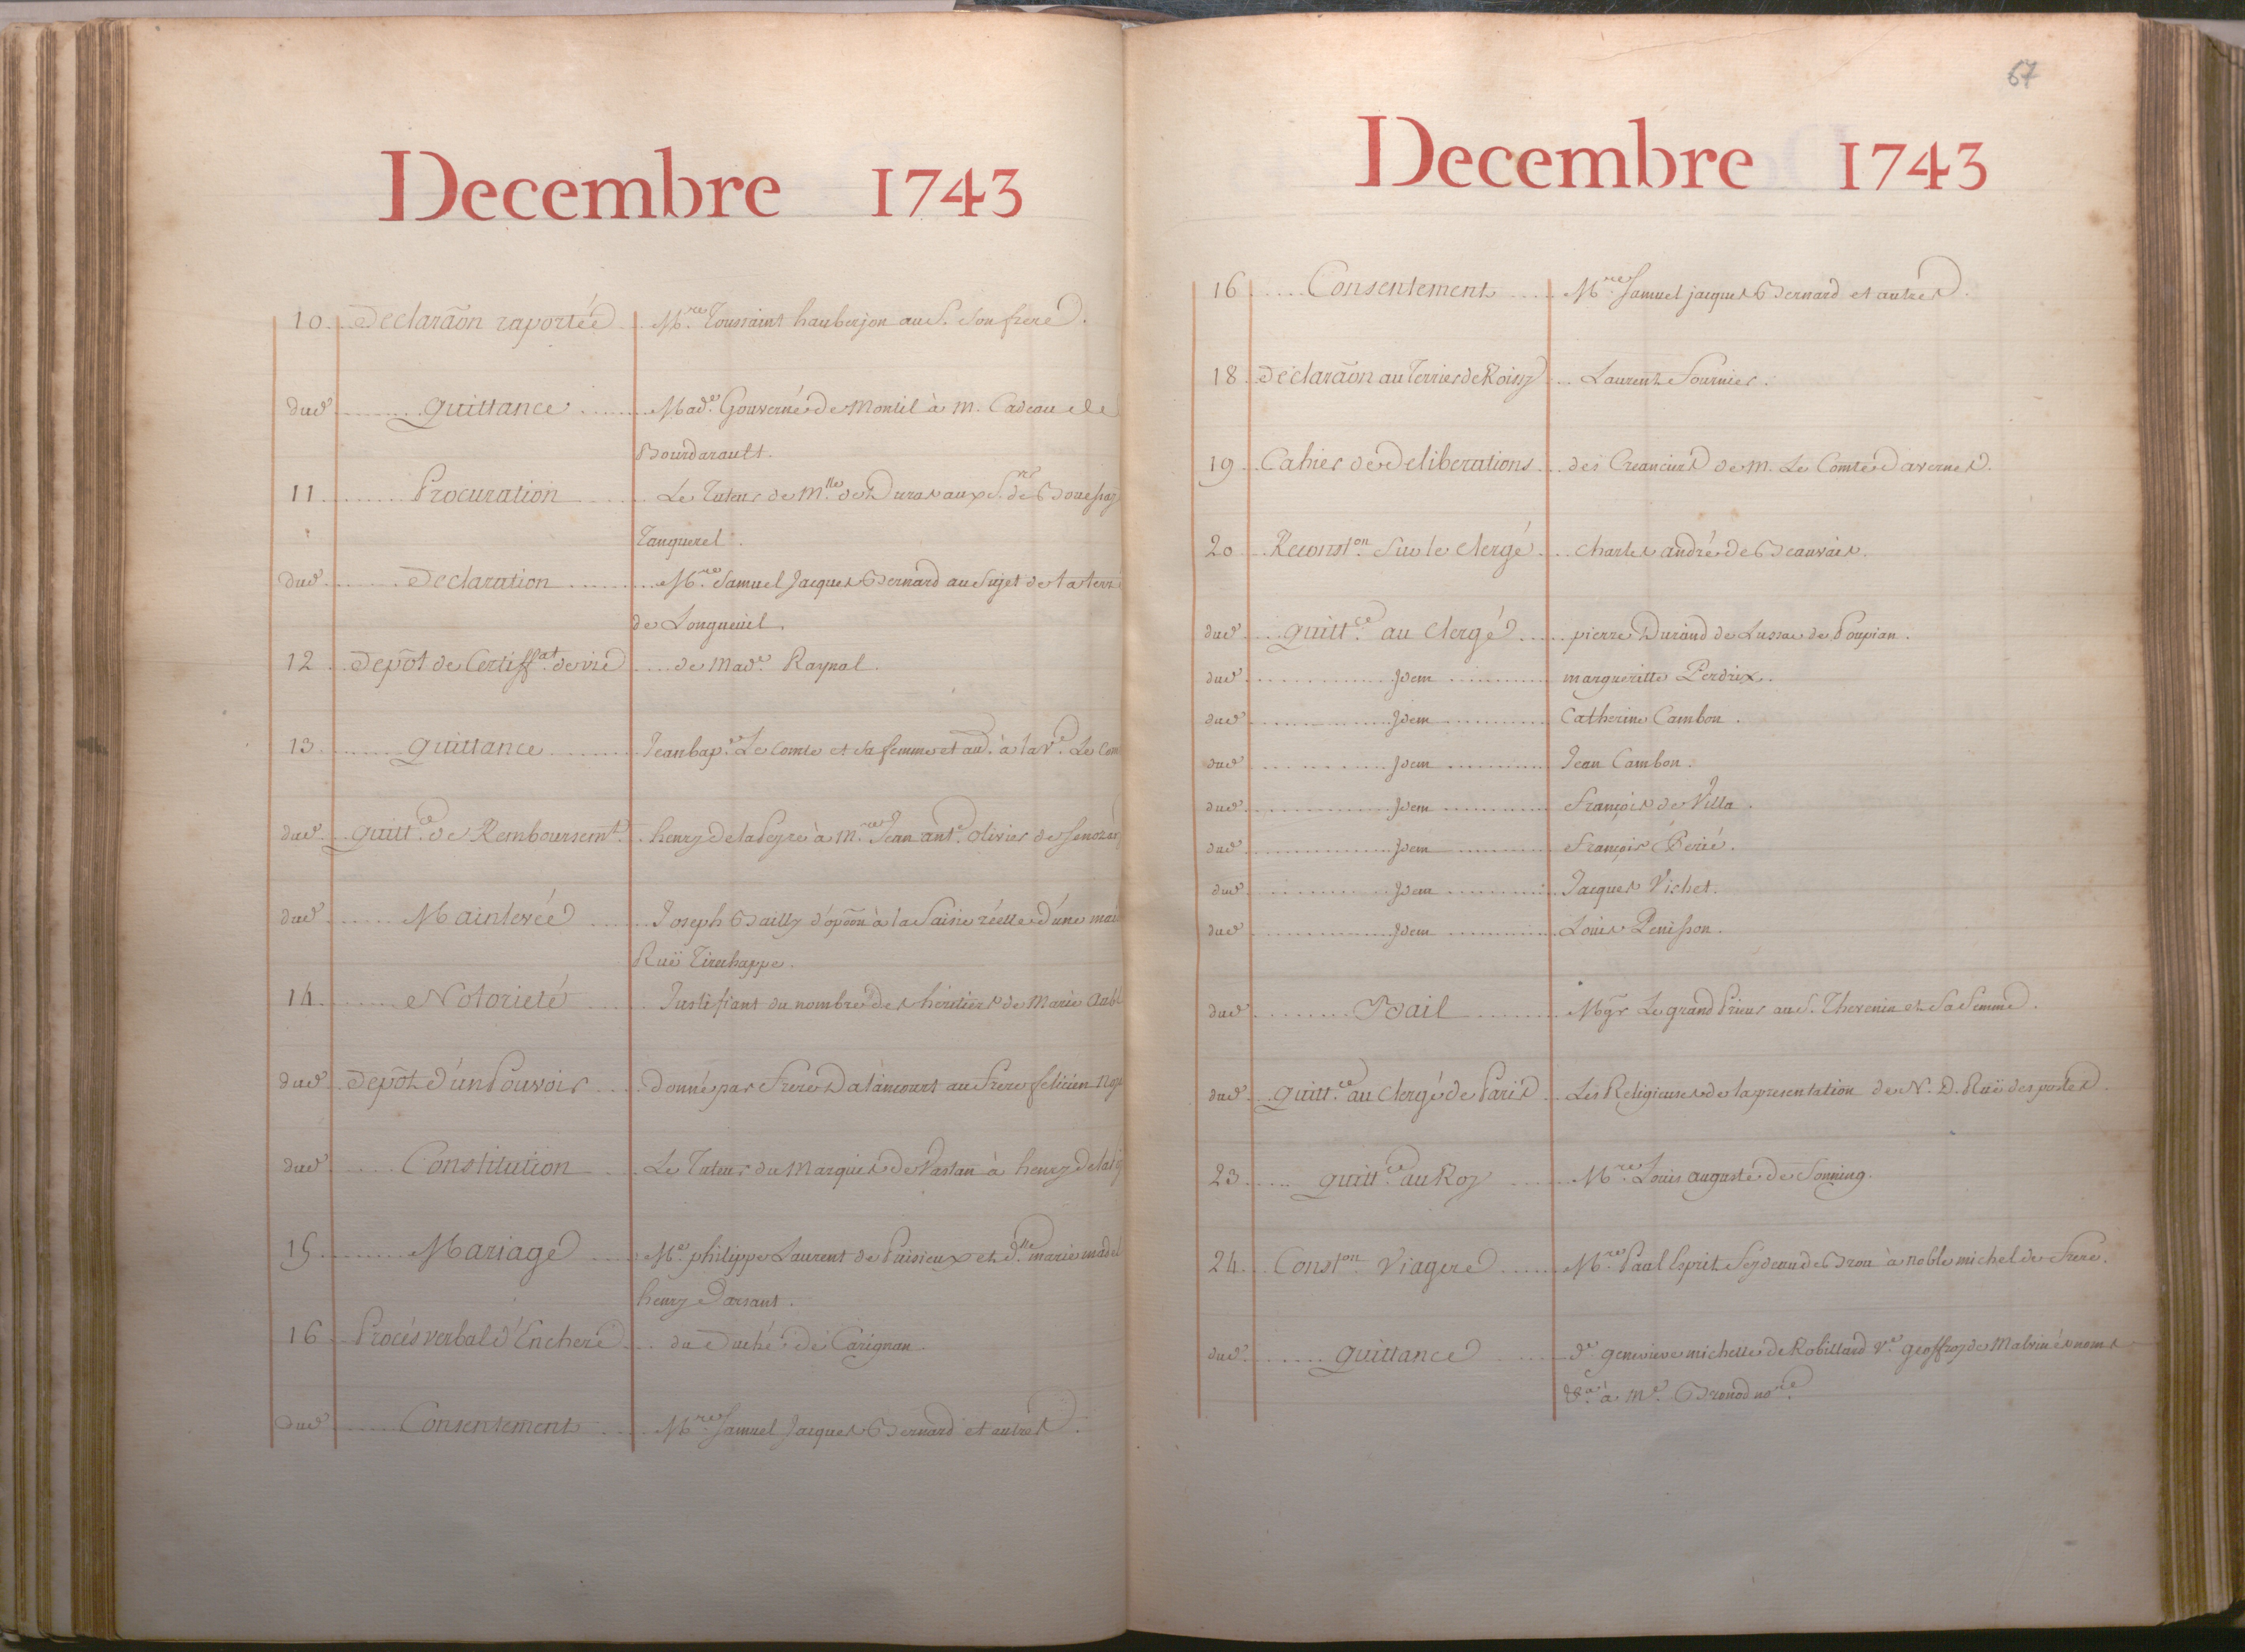 Decembre 1743
10 Declaraõn raportée Mre. Toussaint hauberjon au S. Son frere.
dud. quittance Made. Gouverné de Montil à M. Cadeau de
Bourdarault.
11 Procuration Le Tuteur de Mlle. de Duras aux Srs. de
Tanquerel.
dud. Declaration Mre. Samuel Jacques Bernard au Sujet de la terre
de Longueuil.
12 Depôt de Certiffat. de vie de Made. Raynal.
13 quittance Jean bapte. Le Comte et sa femme et au. à la Ve. Le Com
dud. quittce. de Remboursemt. henry de la Peyre à Mre. Jean ante. Olivier de Senozan
dud. Mainlevée Joseph Bailly d'opõon à la Saisie réelle d'une mai
Ruë Tirechappe.
14 Notorieté Justifiant du nombre des héritiers de Marie Aubl
dud. Depôt d'un Pouvoir donné par Frere Dalancourt au Frere felicien
dud. Constitution Le Tuteur du Marquis de Vastan à henry de la
15 Mariage Me. philippe Laurent de Puisieux et dlle. marie madel
henry Darsant.
16 Procés verbal d'Enchere du Duché de Carignan.
dud. Consentement Mre. Samuel Jacques Bernard et autres.
67
Decembre 1743
16 Consentement Mre. Samuel jacques Bernard et autres.
18 Declaraõn au Terrier de Roissy Laurent Fournier.
19 Cahier de deliberations des Creanciers de M. Le Comte d'avernes.
20 Reconston. Sur le Clergé Charles andré de Beauvais.
dud. quittce. au Clergé pierre Durand de Lussac de Poupian.
dud. Idem margueritte Perdrix.
dud. Idem Catherine Cambon.
dud. Idem Jean Cambon.
dud. Idem François de Villa.
dud. Idem François Perié.
dud. Idem Jacques Vichet.
dud. Idem Louis Penisson.
dud. Bail Mgr. Le grand Prieur au S. Thevenin et Sa Femme.
dud. quittce. au Clergé de Paris Les Religieuses de la presentation de N. D. Ruë des postes.
23 quittce. au Roy Mre. Louis auguste de Sonning.
24 Conston. Viagere Mre. Paul Esprit Feydeau de Brou à noble michel de Frere.
dud. quittance de. genevieve michelle de Robillard Ve. geoffroy de Malvin és noms
&a. à Me. Bronod nore.